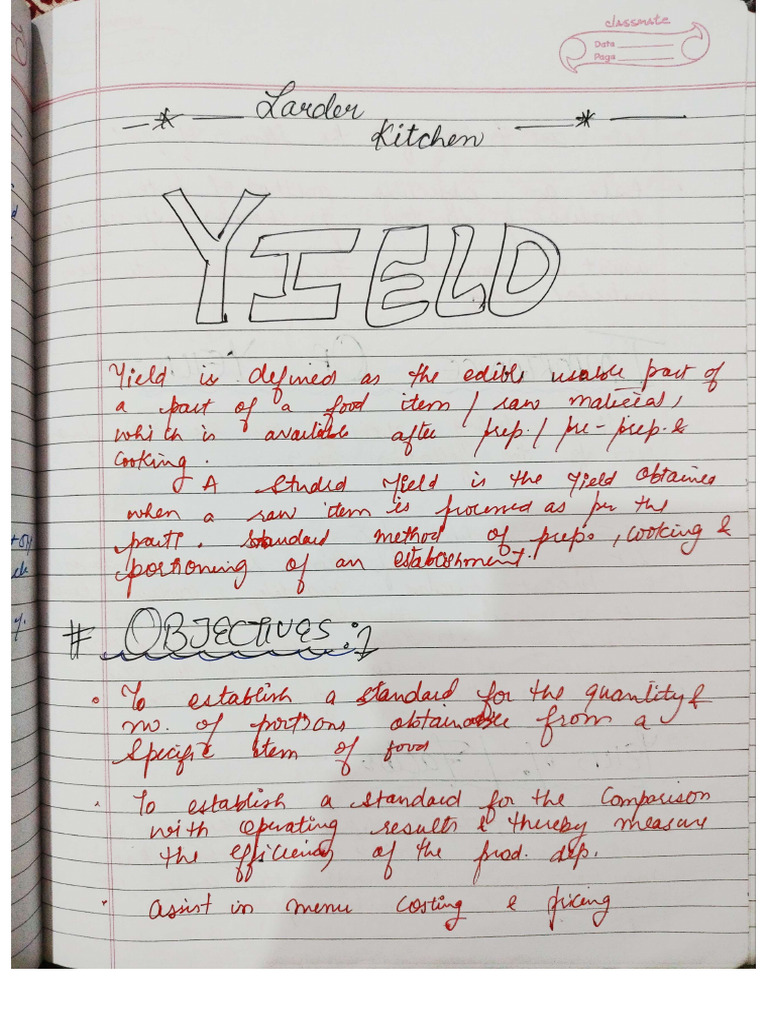 classmate
Date
Page
Larder
Kitchen
YIELD
Yield is defined as the edible usable part of
a part of a food item / raw material,
which is available after prep. / pre-prep. &
cooking.
A Studed Yield is the Yield Obtained
when a raw item is processed as per the
parts. standard method of prep., cooking &
portioning of an establishment.
# OBJECTIVES :-
To establish a standard for the quantity &
no. of portions obtainable from a
Specific item of food
To establish a standard for the Comparison
with operating results & thereby measure
the efficiency of the prod. dep.
assist in menu costing & pricing